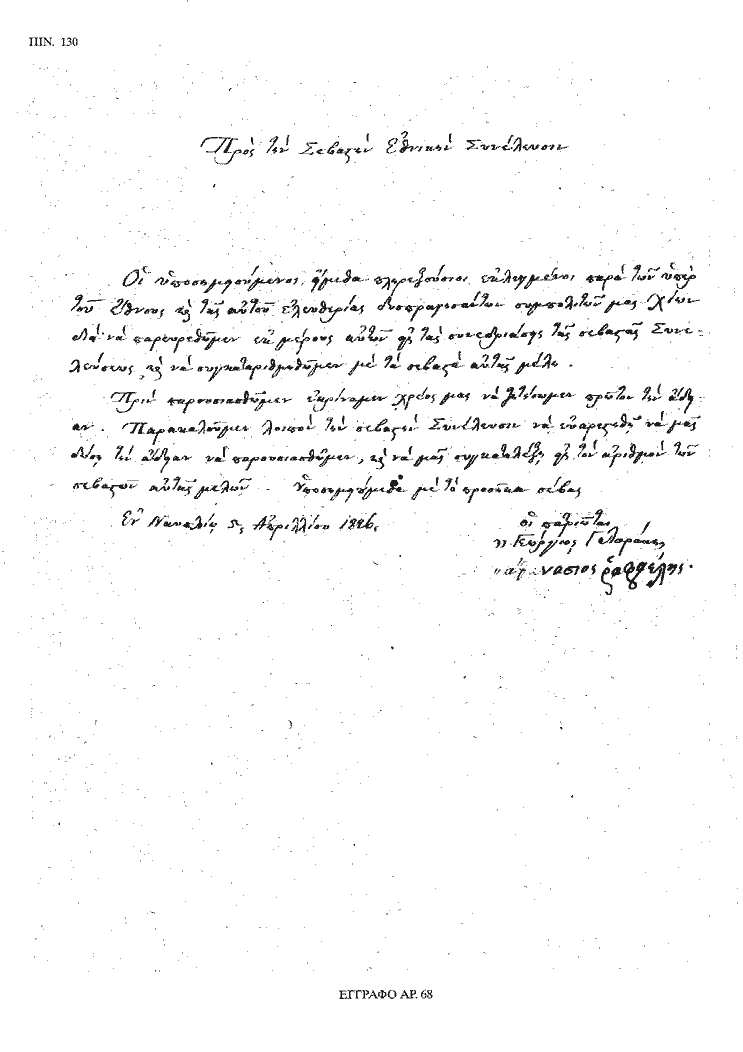 ΠΙΝ. 130
Πρὸς τὴν Σεβαστὴν Ἐθνικὴν Συνέλευσιν
Οἱ ὑποσημειούμενοι, ἤμεθα πληρεξούσιοι ἐκλεγμένοι παρὰ τῶν ὑπὲρ
τοῦ Ἔθνους καὶ τῆς αὐτοῦ ἐλευθερίας συμπολιτῶν μας Χίων
διὰ νὰ παρευρεθῶμεν ἐκ μέρους αὐτῶν εἰς τὰς συνεδριάσεις τῆς σεβαστῆς Συνε-
λεύσεως, καὶ νὰ συγκαταριθμηθῶμεν μὲ τὰ σεβαστὰ αὐτῆς μέλη.
Πρὶν παρουσιασθῶμεν ἐκρίναμεν χρέος μας νὰ ζητήσωμεν πρῶτον τὴν ἄδει-
αν. Παρακαλοῦμεν λοιπὸν τὴν σεβαστὴν Συνέλευσιν νὰ εὐαρεστηθῇ νὰ μᾶς
δώσῃ τὴν ἄδειαν νὰ παρουσιασθῶμεν, καὶ νὰ μᾶς συγκαταλέξῃ εἰς τὸν ἀριθμὸν τῶν
σεβαστῶν αὐτῆς μελῶν. Ὑποσημειούμεθα μὲ τὸ προσῆκον σέβας
Ἐν Ναυπλίῳ 5 Ἀπριλλίου 1826,
οἱ πατριῶται
Γεώργιος Γλαράκης
Ῥαφαέλης.
ΕΓΓΡΑΦΟ ΑΡ. 68